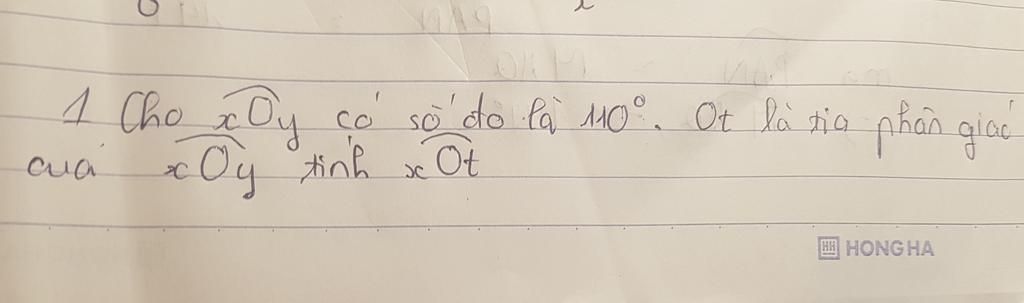 1 Cho xOy có số đo là 110°. Ot là tia phân giác
của xOy tính xOt
HH HONG HA